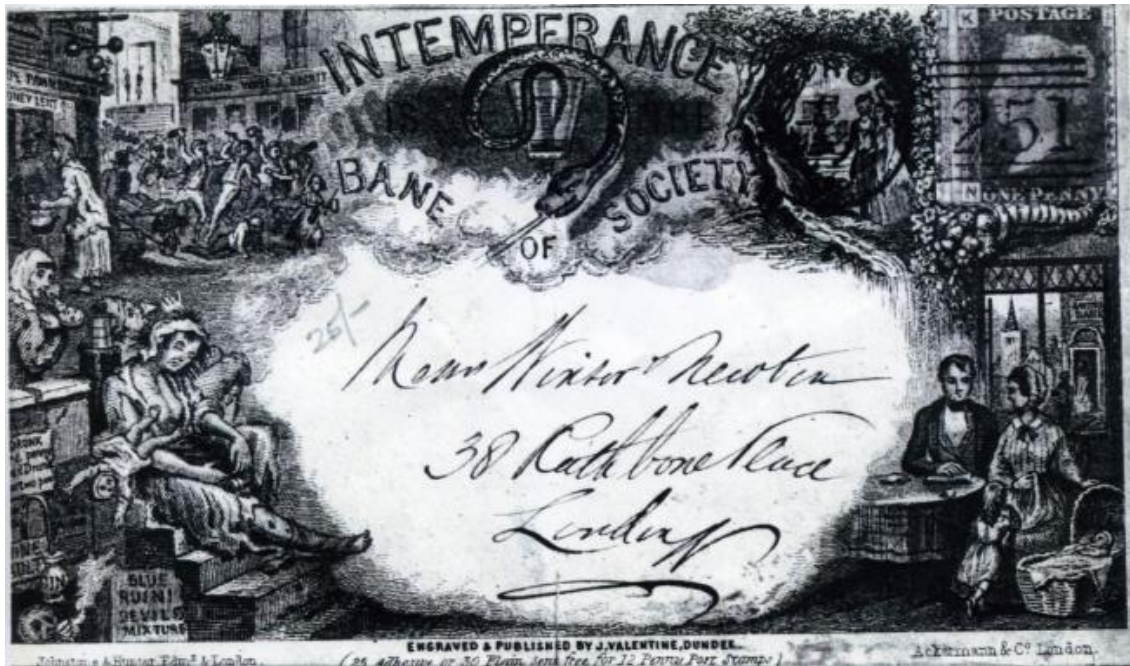 INTEMPERANCE
IS THE
BANE OF SOCIETY
K POSTAGE
251
N ONE PENNY
MONEY LENT
25/-
Messrs Winsor & Newton
38 Rathbone Place
London
DRUNK
GIN
BLUE
RUIN!
DEVILS
MIXTURE
ENGRAVED & PUBLISHED BY J. VALENTINE, DUNDEE.
Johnstone & Hunter Edinr. & London.
(25 adhesive or 30 Plain sent free for 12 Penny Post Stamps)
Ackermann & Co. London.